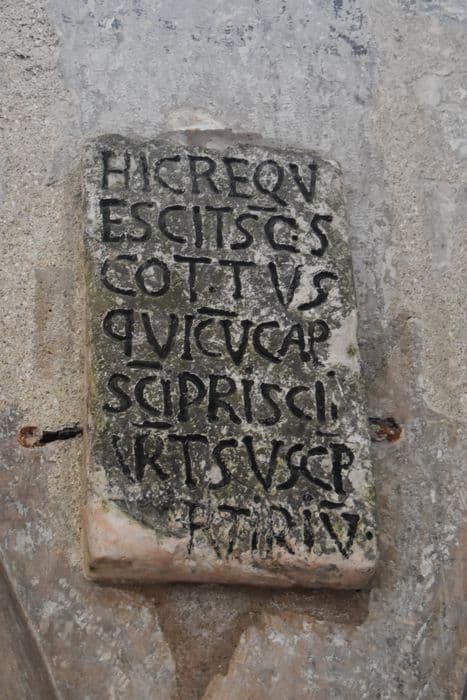 HICREQV
ESCITSC̅S
COT·TVS
qVICV̅CAP
SC̅IPRISCIi
MRTSVSCP
RTIRIV̅·